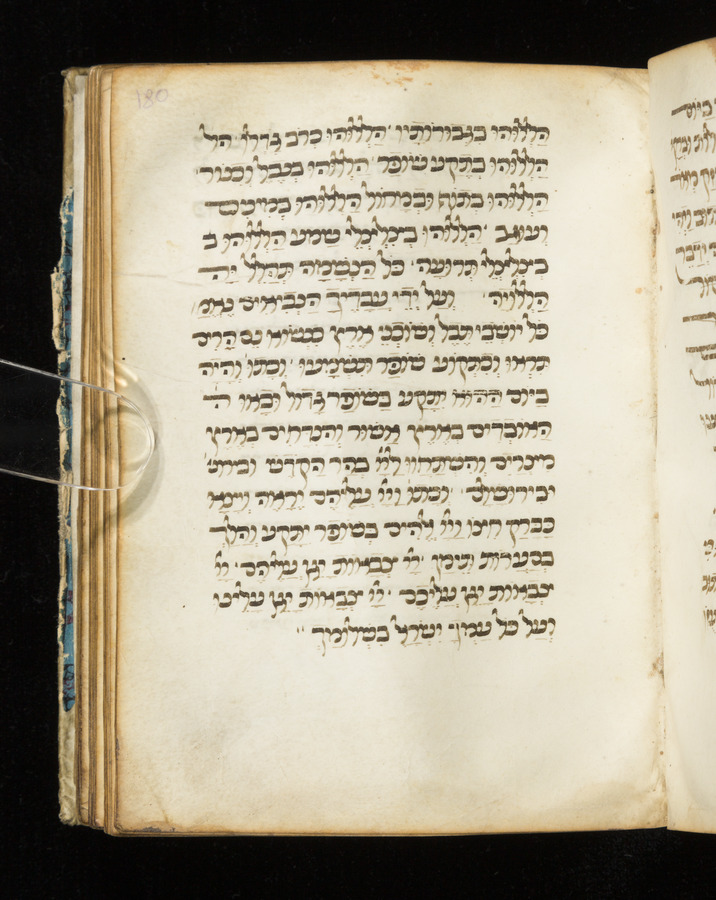 180
הללוהו בגבורותיו הללוהו כרב גדלו הל
הללוהו בתקע שופר הללוהו בנבל וכנור
הללוהו בתוף ובמחול הללוהו במינים
ועוגב הללוהו בצלצלי שמע הללוהו ב
בצלצלי תרועה כל הנשמה תהלל יה
הללויה ועל ידי עבדיך הנביאים נאמ
כל יושבי תבל ושוכני ארץ כנשוא נס הרים
תראו וכתקוע שופר תשמעו וכתו והיה
ביום ההוא יתקע בשופר גדול ובאו ה
האובדים בארץ אשור והנדחים בארץ
מצרים והשתחוו ליי בהר הקדש
בירושלם וכתו ויי עליהם יראה ויצא
כברק חיצו ויי אלהים בשופר יתקע והלך
בסערות תימן יי צבאות יגן עליהם יי
צבאות יגן עליכם יי צבאות יגן עלינו
ועל כל עמך ישראל בשלומך